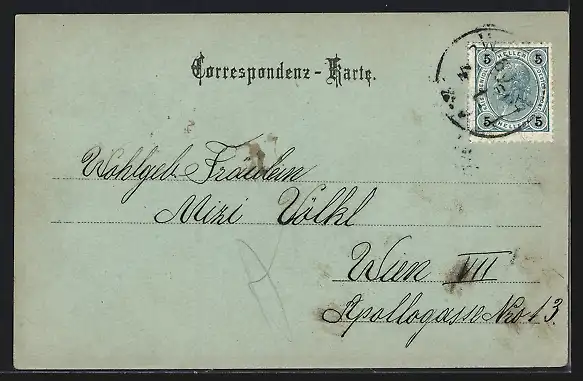 Correspondenz-Karte.
5 HELLER 5
5 HELLER 5
Wohlgeb Fräulein
Mizi Völkl
Wien VII
Apollogasse Nro 13.